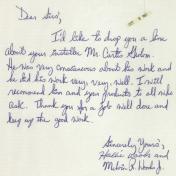 Dear Sirs,
I'd like to drop you a line
about your installer Mr. Curtis
He was very conscientious about his work and
he did his work very, very, well. I will
recommend him and your products to all who
ask. Thank you for a job well done and
keep up the good work.
Sincerely Yours,
and